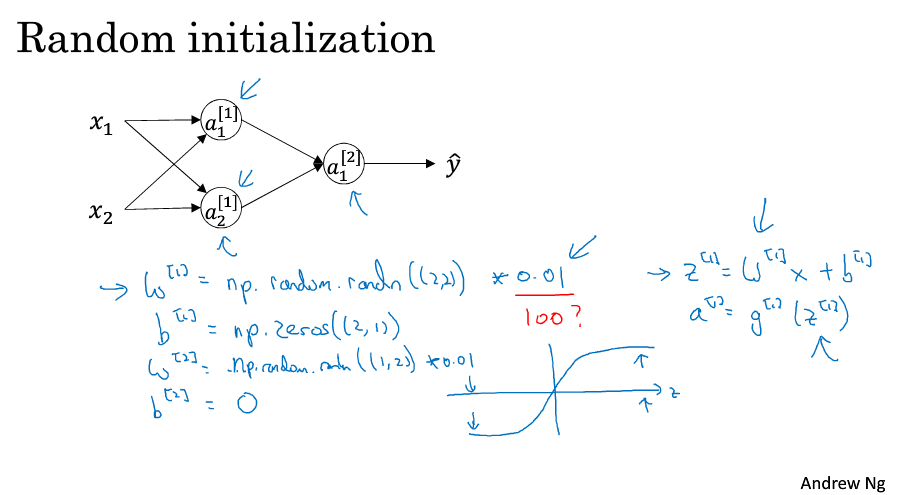 Random initialization
x₁
a₁^[1]
x₂
a₂^[1]
a₁^[2]
ŷ
→ W^[1] = np.random.randn((2,2)) * 0.01
100?
b^[1] = np.zeros((2,1))
W^[2] = np.random.randn((1,2)) * 0.01
b^[2] = 0
z
→ z^[1] = W^[1] x + b^[1]
a^[1] = g^[1] (z^[1])
Andrew Ng